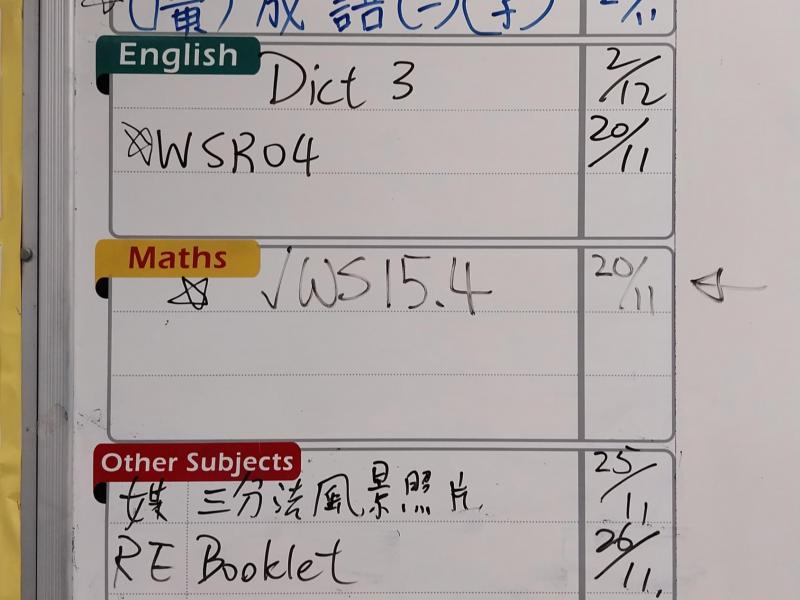 成語(一)(字)
English
Dict 3 2/12
WSR04 20/11
Maths
√WS15.4 20/11
Other Subjects
媒 三分法風景照片 25/11
RE Booklet 26/11.